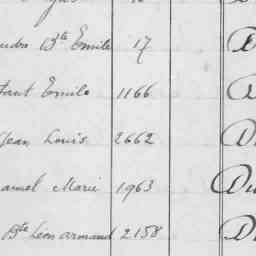 Bte Emile 17 D
Emile 1166 D
Jean Louis 2662 D
Marie 1963 Du
Bte Léon armand 2158 D